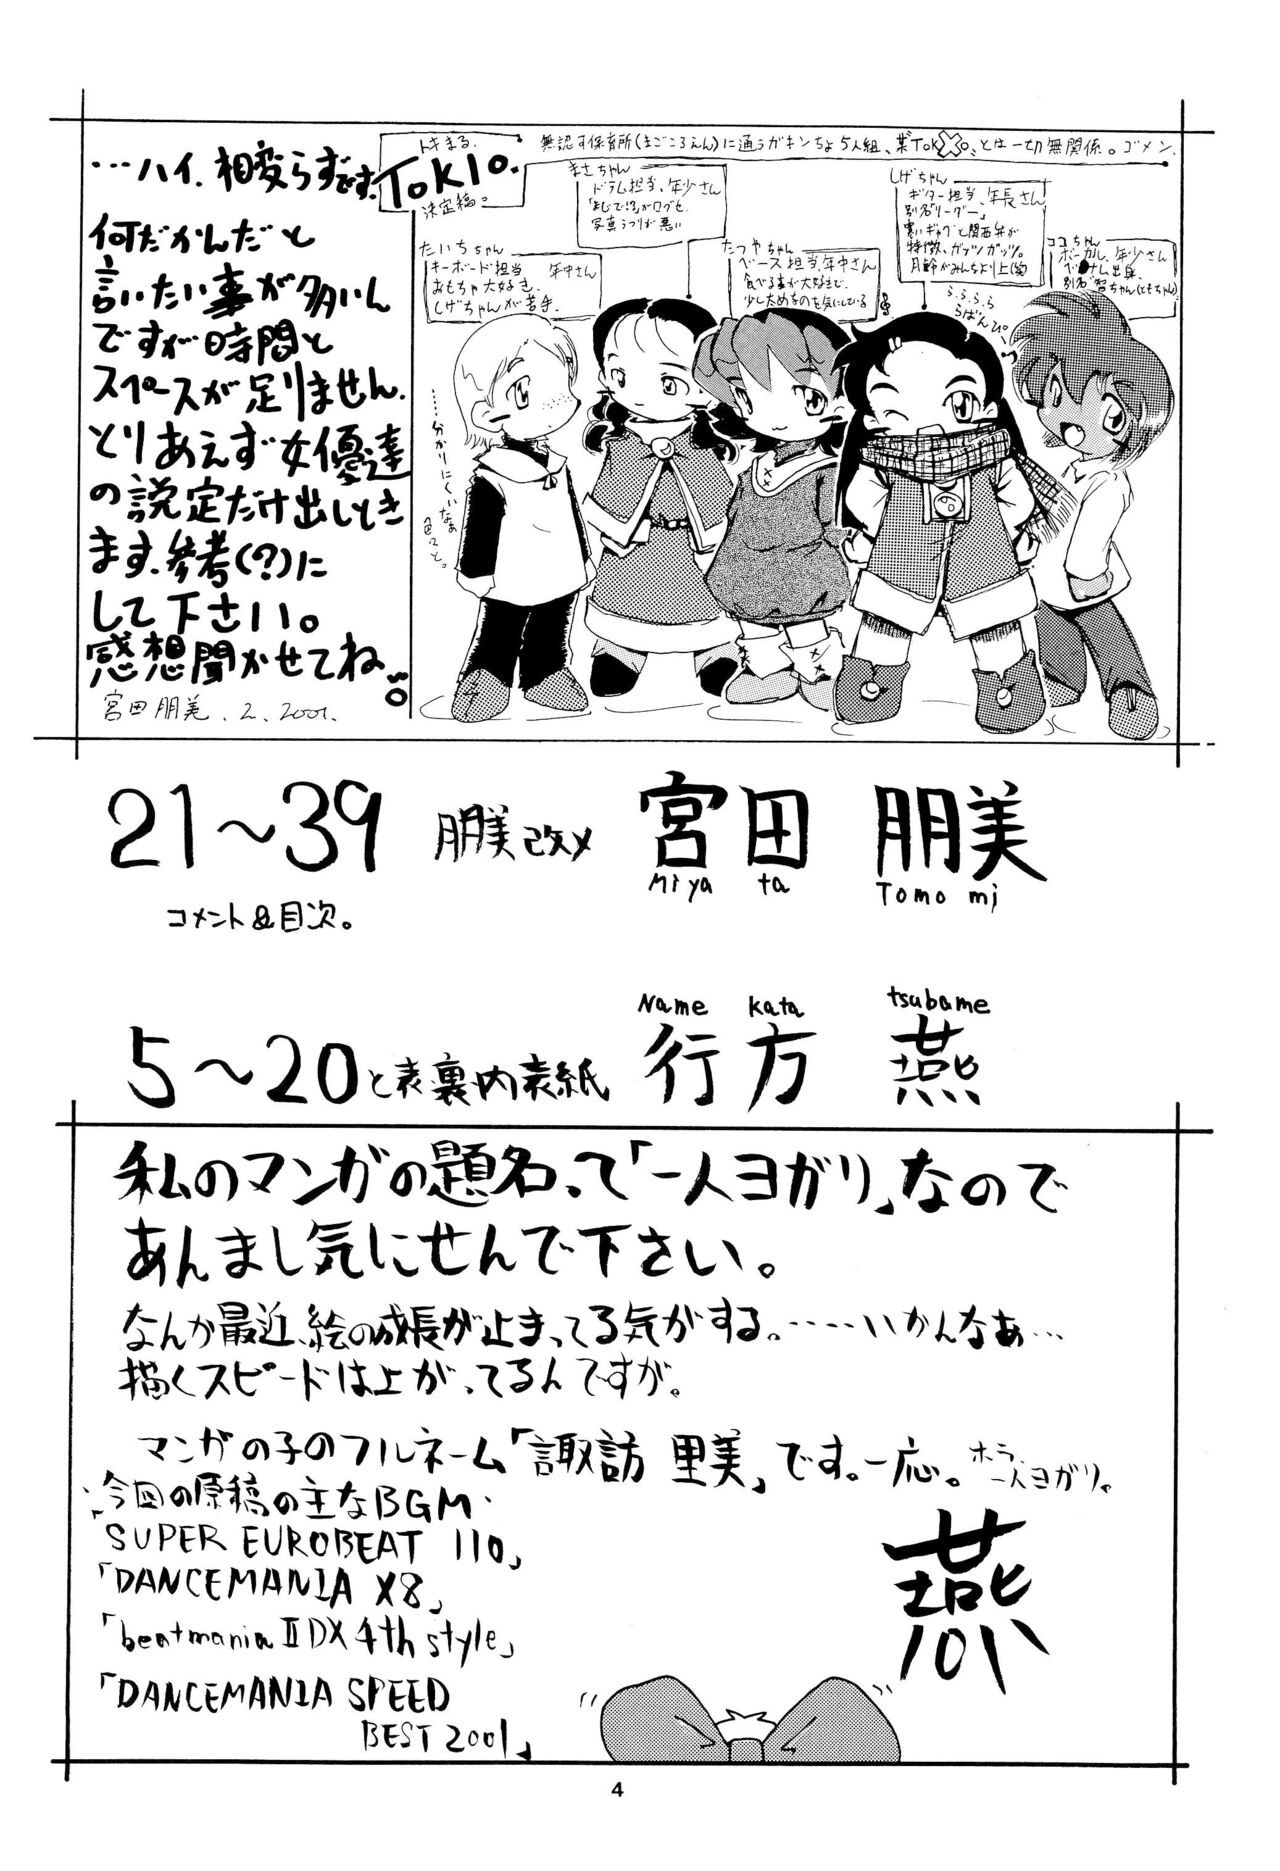 …ハイ、相変らずです。
何だかんだと
言いたい事が多いん
ですが時間と
スペースが足りません。
とりあえず女優達
の設定だけ出しとき
ます。参考(?)に
して下さい。
感想聞かせてね
宮田朋美.2.2001.
トキまる
TOKIO.
決定稿。
無認可保育所(まごころえん)に通うガキンちょ5人組、
とは一切無関係。ゴメン.
たいちちゃん
キーボード担当 年中さん
おもちゃ大好き
しげちゃんが苦手.
まさちゃん
ドラム担当、年少さん
「まじで!?」がログセ
写真うつりが悪い
たつやちゃん
ベース担当、年中さん
食べる事が大好きで
少し太めなのを気にしている
しげちゃん
ギター担当、年長さん
別名「リーダー」
寒いギャグと関西弁が
特徴、ガッツガッツ。
月齢がみんなより上(笑)
ココちゃん
ボーカル、年少さん
ベトナム出身
別名 智ちゃん(ともちゃん)
ららららら
らばんぴ。
……分かりにくいなあ
色々と。
21〜39 朋美改メ 宮田 朋美
Mi ya ta Tomo mi
コメント&目次。
Name kata tsubame
5〜20と表裏内表紙 行方 燕
私のマンガの題名って「一人ヨガリ」なので
あんまし気にせんで下さい。
なんか最近、絵の成長が止まってる気がする。……いかんなぁ…
描くスピードは上がってるんですが。
マンガの子のフルネーム「諏訪 里美」です。一応。ホラ、
一人ヨガリ。
今回の原稿の主なBGM
「SUPER EUROBEAT 110」
「DANCEMANIA X8」
「beatmania II DX 4th style」
「DANCEMANIA SPEED
BEST 2001」
燕
4